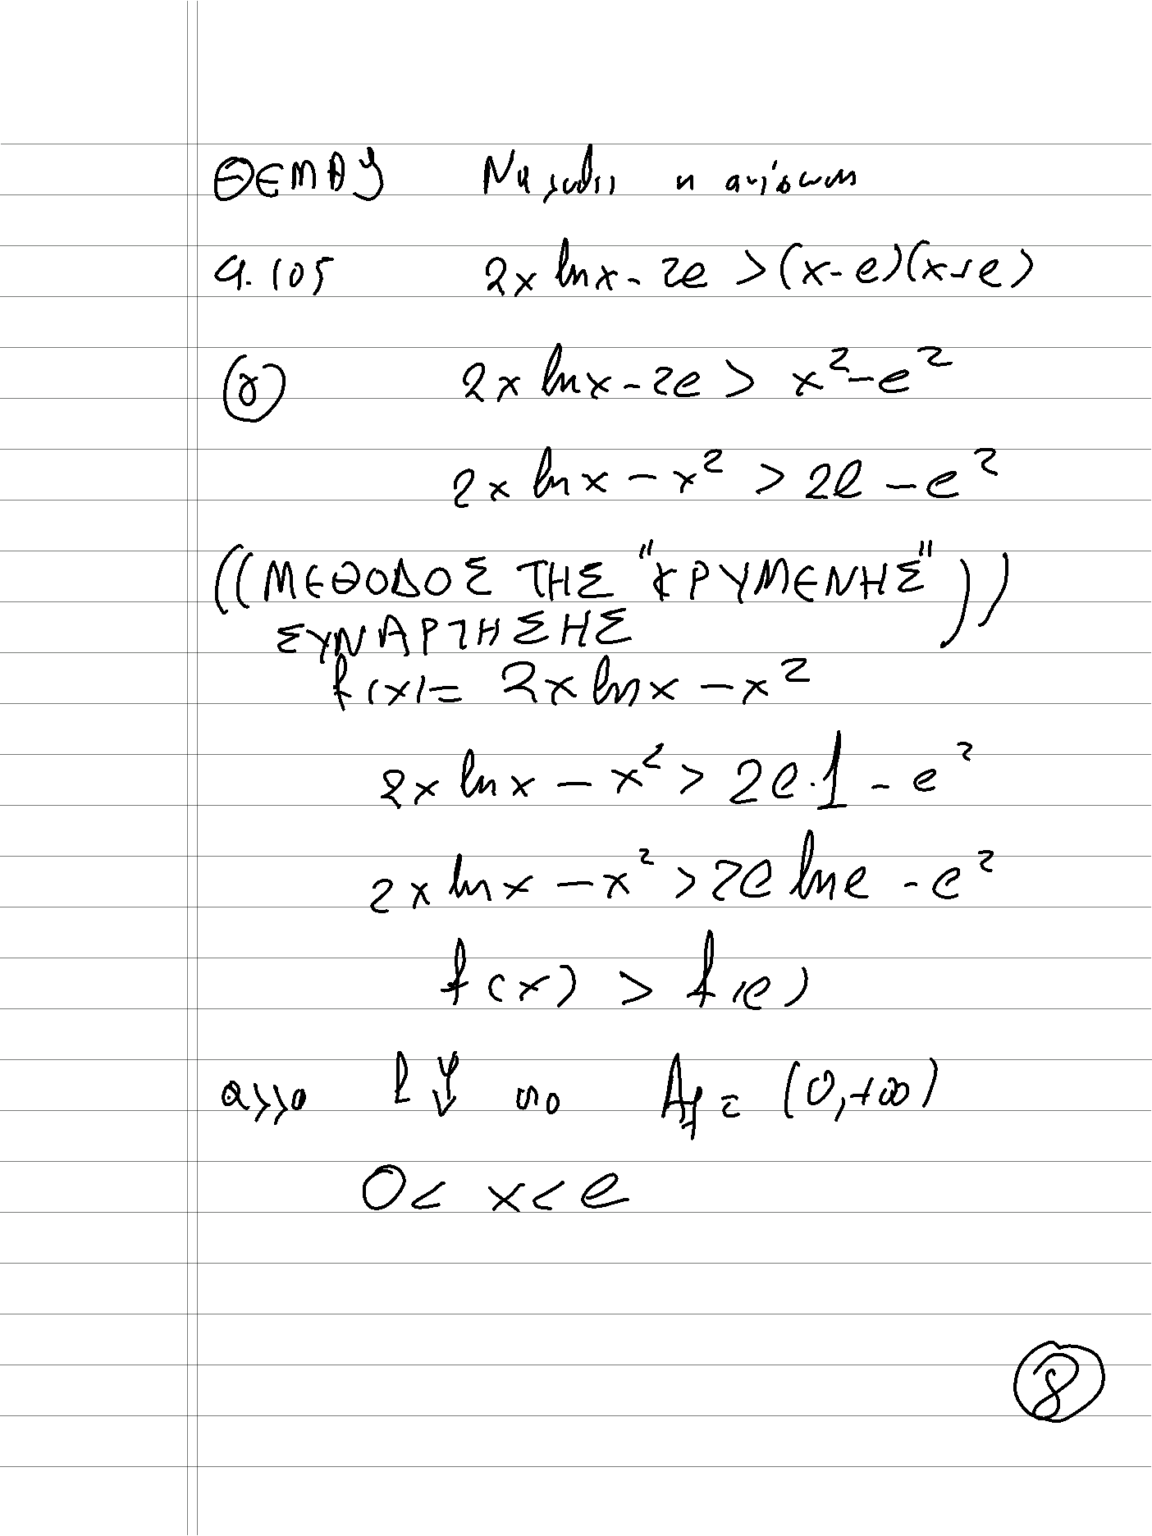 ΘΕΜΑ Να λυθεί η ανίσωση
4.105 2x lnx - 2e > (x-e)(x+e)
γ 2x lnx - 2e > x² - e²
2x lnx - x² > 2e - e²
((ΜΕΘΟΔΟΣ ΤΗΣ "ΚΡΥΜΕΝΗΣ"
ΣΥΝΑΡΤΗΣΗΣ ))
f(x) = 2x lnx - x²
2x lnx - x² > 2e·1 - e²
2x lnx - x² > 2e lne - e²
f(x) > f(e)
αλλά f ↓ στο A_f = (0,+∞)
0 < x < e
8